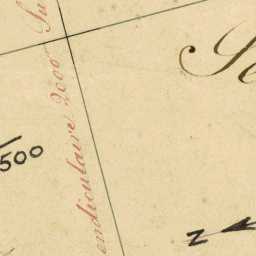 endiculaire 2000 Su
Se
500
N